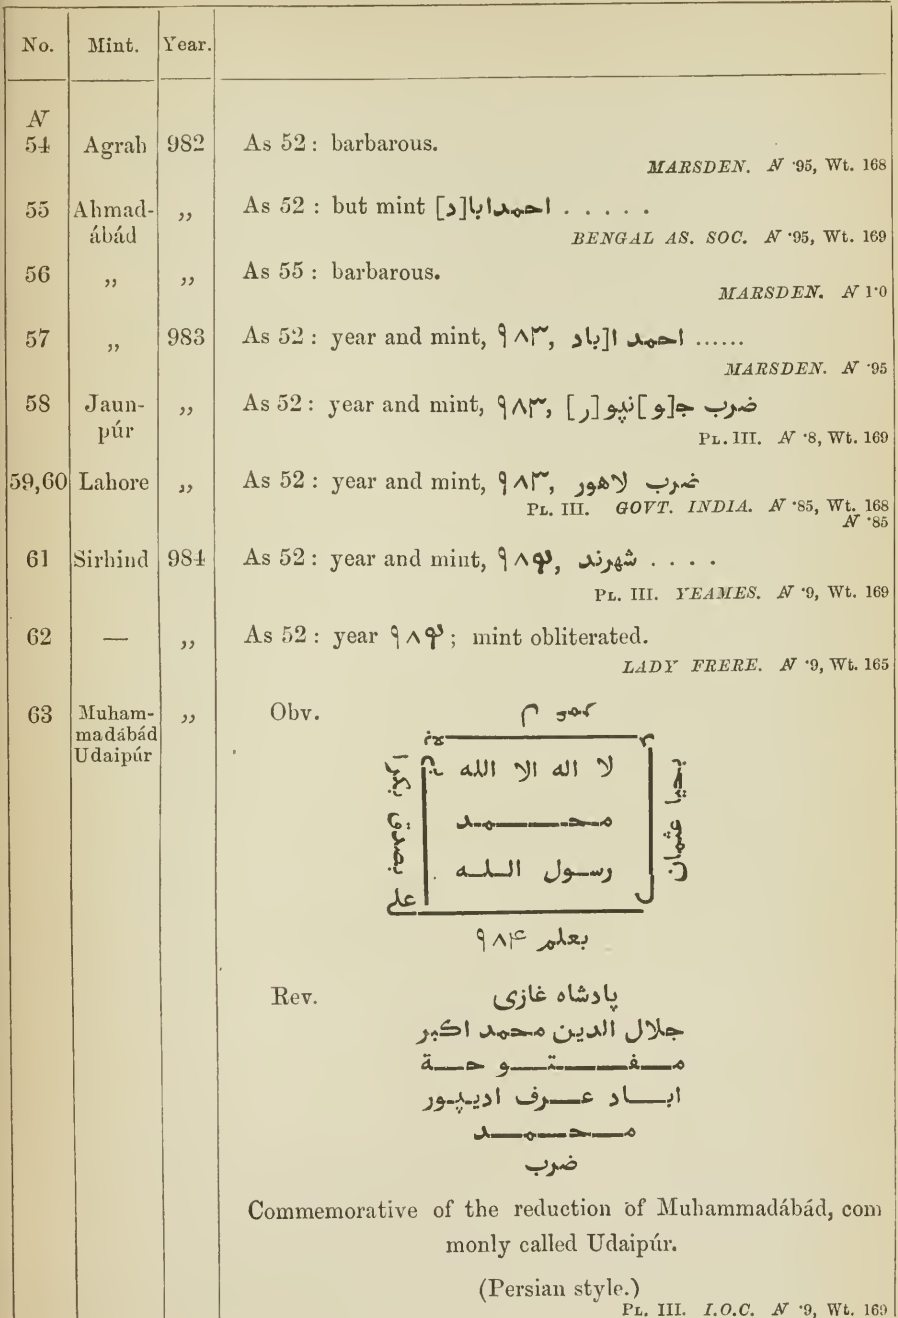 No. Mint. Year.
N
54 Agrah 982 As 52 : barbarous.
MARSDEN. N ·95, Wt. 168
55 Ahmad- ,, As 52 : but mint احمدابا[د] . . . . .
ábád
BENGAL AS. SOC. N ·95, Wt. 169
56 ,, ,, As 55 : barbarous.
MARSDEN. N 1·0
57 ,, 983 As 52 : year and mint, ٩٨٣, احمد ا[باد ......
MARSDEN. N ·95
58 Jaun- ,, As 52 : year and mint, ٩٨٣, ضرب ج[و]نپو[ر]
púr
PL. III. N ·8, Wt. 169
59,60 Lahore ,, As 52 : year and mint, ٩٨٣, ضرب لاهور
PL. III. GOVT. INDIA. N ·85, Wt. 168
N ·85
61 Sirhind 984 As 52 : year and mint, ٩٨۴, شهرند . . . .
PL. III. YEAMES. N ·9, Wt. 169
62 — ,, As 52 : year ٩٨۴ ; mint obliterated.
LADY FRERE. N ·9, Wt. 165
63 Muham- ,, Obv.
madábád
Udaipúr
لا اله الا الله
محمد
رسول الله
بصدق
علی
بحیا عثمان
بعلم ٩٨۴
Rev.
پادشاه غازی
جلال الدین محمد اکبر
مفتوحة
اباد عرف ادیپور
محمد
ضرب
Commemorative of the reduction of Muhammadábád, com
monly called Udaipúr.
(Persian style.)
PL. III. I.O.C. N ·9, Wt. 169